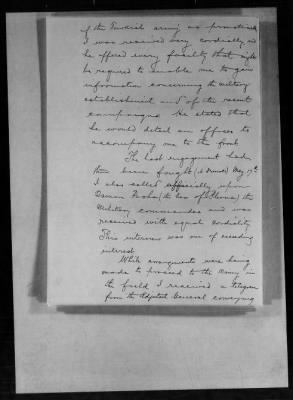 of the Turkish army as promised
I was received very cordially and
he offered every facility that might
be required to enable me to gain
information concerning the military
establishment and of the recent
campaigns. He stated that
he would detail an officer to
accompany me to the front.
The last engagement had
then been fought (at Domokos) May 17th
I also called officially upon
Osman Pasha (the hero of Plevna) the
military commander and was
received with equal cordiality
This interview was one of exceeding
interest
While arrangements were being
made to proceed to the army in
the field I received a telegram
from the Adjutant General conveying